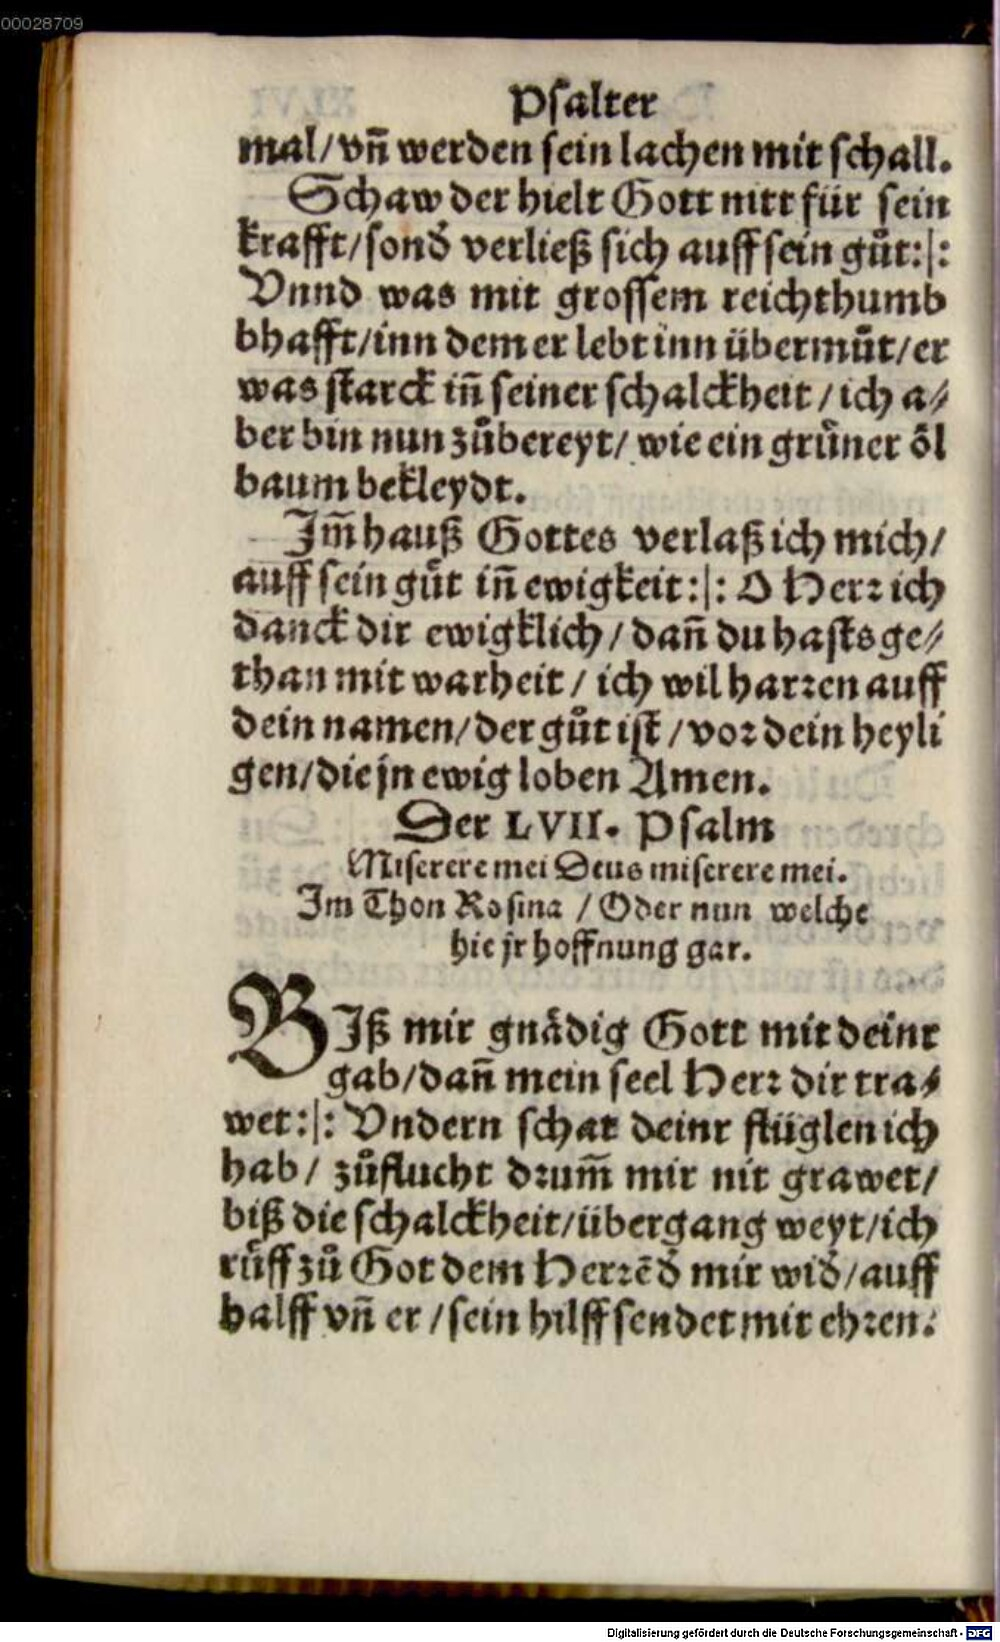 00028709
Psalter
mal/ vn̄ werden sein lachen mit schall.
Schaw der hielt Gott nitt für sein
krafft/ sond̉ verließ sich auff sein gůt:|:
Vnnd was mit grossem reichthumb
bhafft/ inn dem er lebt inn übermůt/ er
was starck in̄ seiner schalckheit / ich a⸗
ber bin nun zůbereyt/ wie ein grůner ôl
baum bekleydt.
Im̄ hauß Gottes verlaß ich mich/
auff sein gůt in̄ ewigkeit:|: O Herꝛ ich
danck dir ewigklich / dan̄ du hasts ge⸗
than mit warheit / ich wil harꝛen auff
dein namen/ der gůt ist / voꝛ dein heyli
gen/ die jn ewig loben Amen.
Der LVII. Psalm
Miserere mei Deus miserere mei.
Im Thon Rosina / Oder nun welche
hie jr hoffnung gar.
BIß mir gnådig Gott mit deinr
gab/ dan̄ mein seel Herꝛ dir tra⸗
wet:|: Vndern schat deinr flüglen ich
hab/ zůflucht dꝛum̄ mir nit grawet/
biß die schalckheit/ übergang weyt/ ich
růff zů Got dem Herꝛēd̉ mir wid̉/ auff
halff vn̄ er / sein hilff sendet mit ehꝛen:
Digitalisierung gefördert durch die Deutsche Forschungsgemeinschaft - DFG